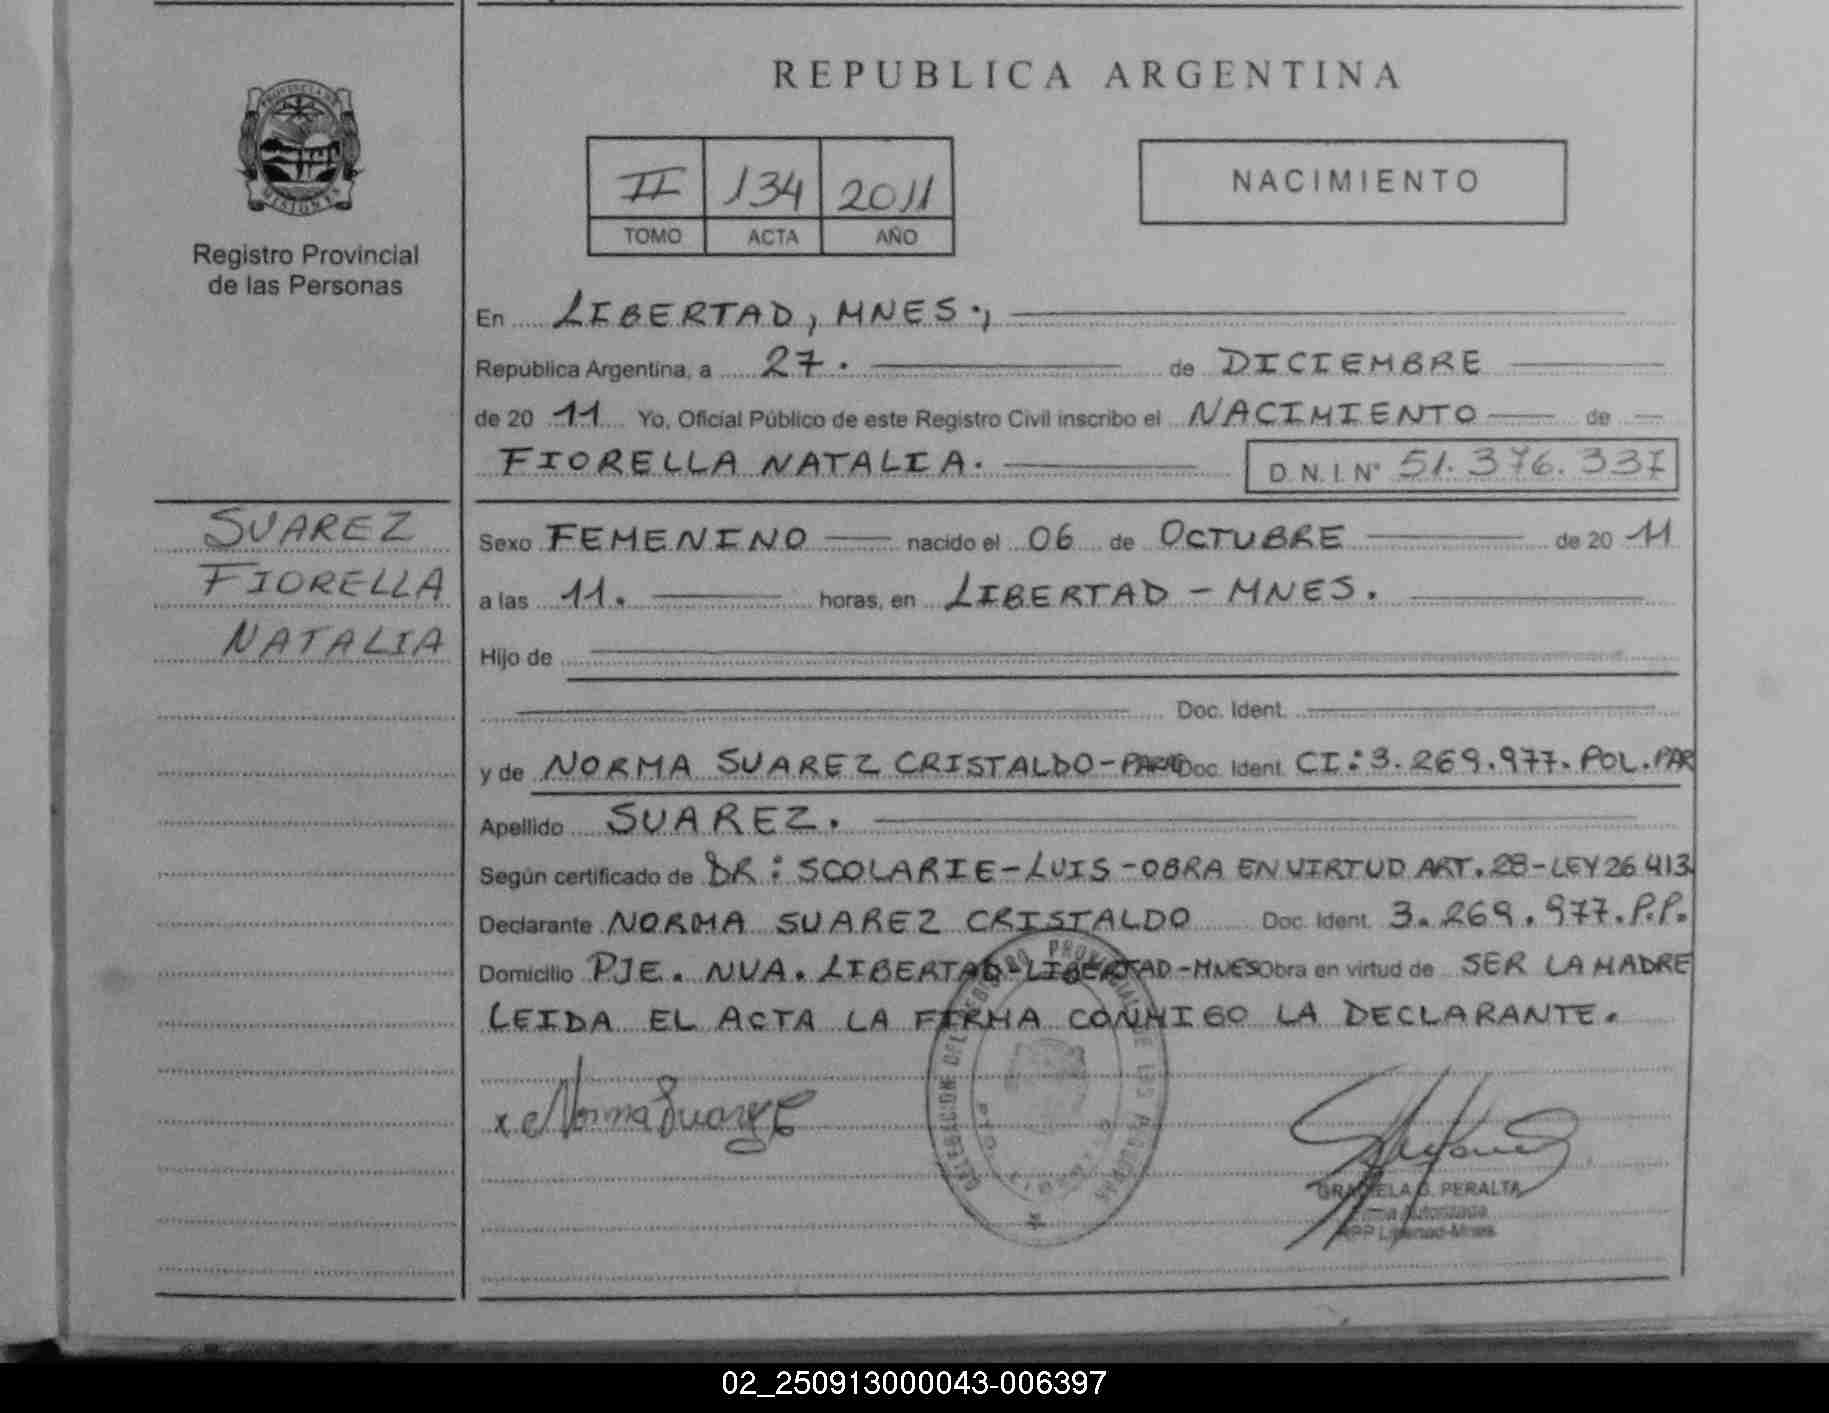 REPUBLICA ARGENTINA
PROVINCIA DE
MISIONES
Registro Provincial
de las Personas
II 134 2011
TOMO ACTA AÑO
NACIMIENTO
En LIBERTAD, MNES.,
República Argentina, a 27. de DICIEMBRE
de 20 11 Yo, Oficial Público de este Registro Civil inscribo el NACIMIENTO de
FIORELLA NATALIA. D.N.I. N° 51.376.337
SUAREZ
FIORELLA
NATALIA
Sexo FEMENINO nacido el 06 de OCTUBRE de 20 11
a las 11. horas, en LIBERTAD - MNES.
Hijo de
Doc. Ident.
y de NORMA SUAREZ CRISTALDO - Doc. Ident. CI: 3.269.977. POL. PAR
Apellido SUAREZ.
Según certificado de DR: SCOLARIE - LUIS - OBRA EN VIRTUD ART. 28 - LEY 26 413
Declarante NORMA SUAREZ CRISTALDO Doc. Ident. 3.269.977. P.P.
Domicilio PJE. NVA. LIBERTAD - LIBERTAD - MNES Obra en virtud de SER LA MADRE
LEIDA EL ACTA LA FIRMA CONMIGO LA DECLARANTE.
x Norma Suarez C
GRACIELA PERALTA
Firma Autorizada
RPP Libertad-Mnes
02_250913000043-006397